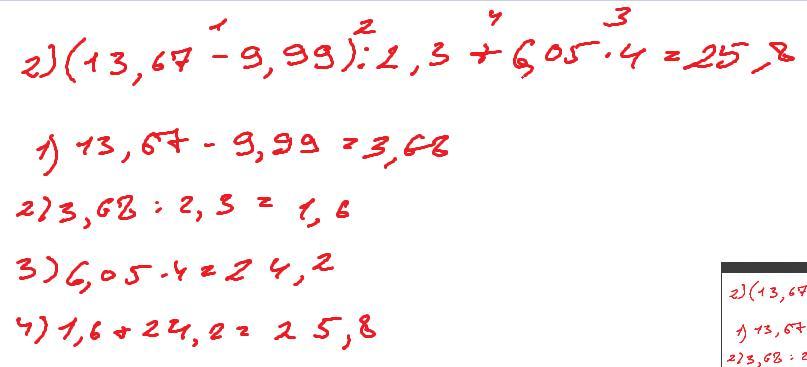 1 2 4 3
2) (13,67 - 9,99) : 2,3 + 6,05 · 4 = 25,8
1) 13,67 - 9,99 = 3,68
2) 3,68 : 2,3 = 1,6
3) 6,05 · 4 = 24,2
4) 1,6 + 24,2 = 25,8
2) (13,67
1) 13,67
2) 3,68 : 2